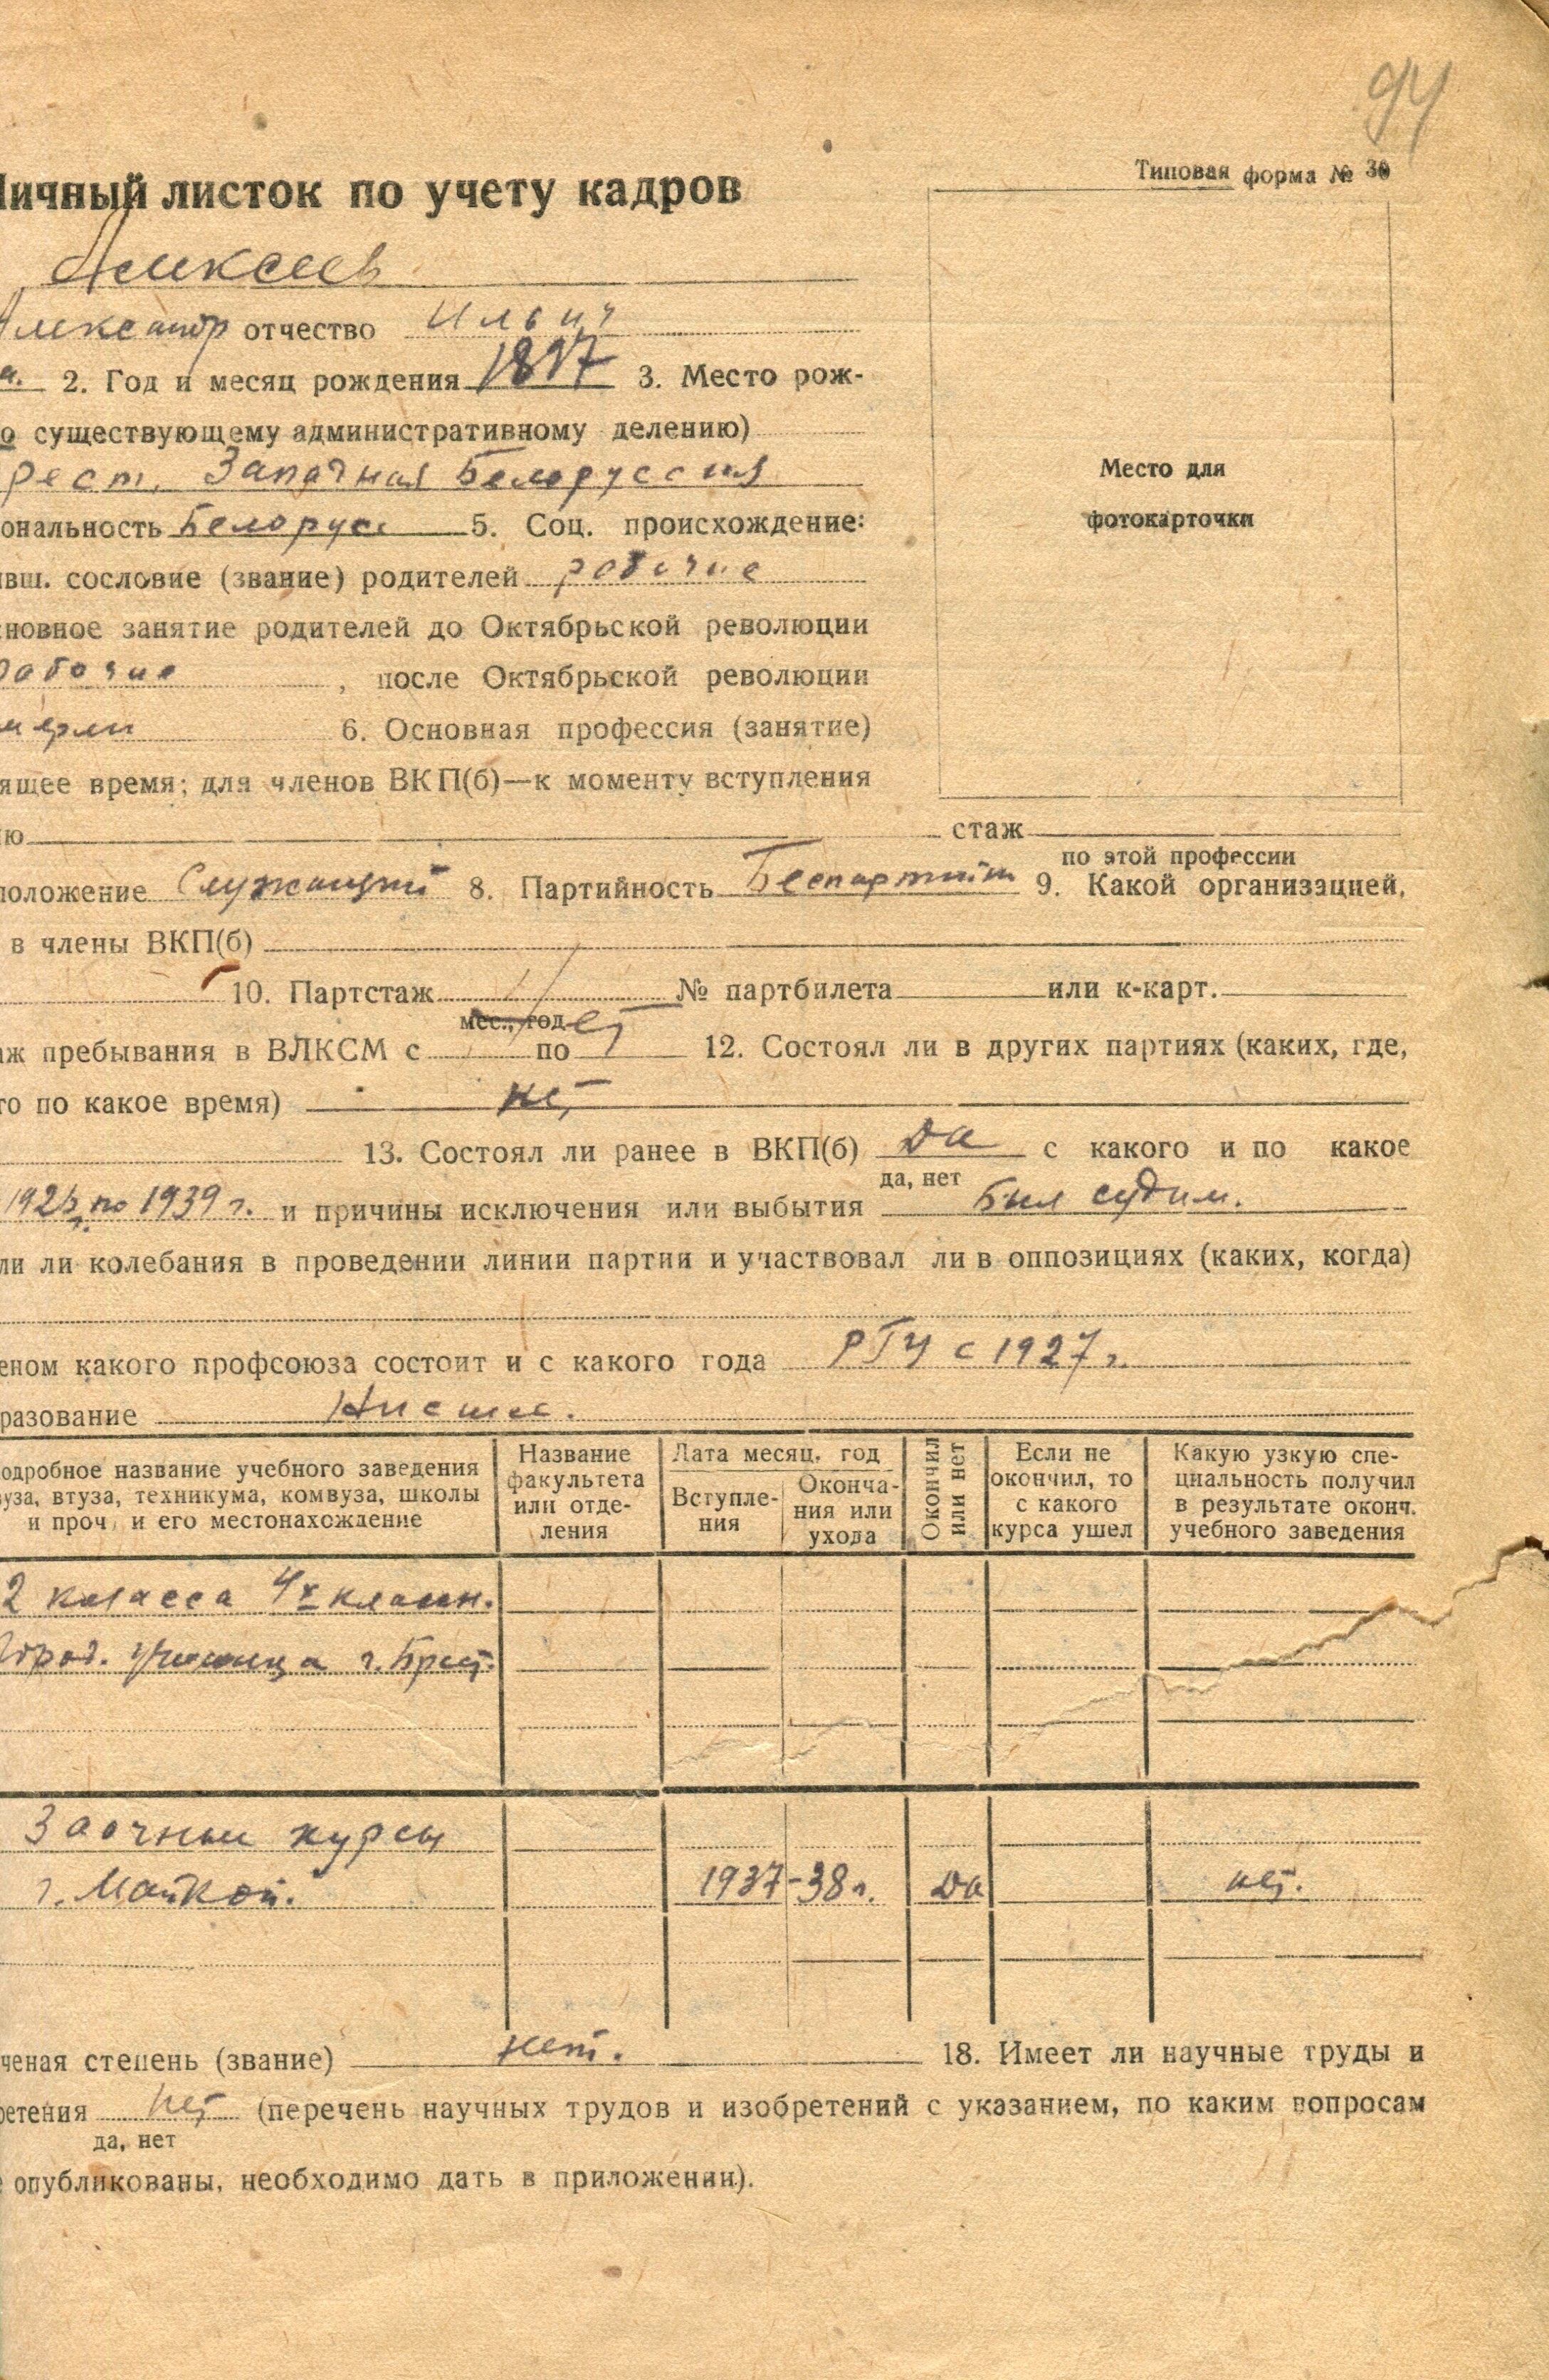 94
Типовая форма № 30
Личный листок по учету кадров
Алексеев
Александр отчество Ильич
а. 2. Год и месяц рождения 1897 3. Место рож-
о существующему административному делению)
рест. Западная Белоруссия
ональность Белорус 5. Соц. происхождение:
ивш. сословие (звание) родителей рабочие
сновное занятие родителей до Октябрьской революции
рабочие, после Октябрьской революции
мерли 6. Основная профессия (занятие)
ящее время; для членов ВКП(б)—к моменту вступления
ию стаж
по этой профессии
положение Служащий 8. Партийность Беспартийн 9. Какой организацией,
в члены ВКП(б)
10. Партстаж № партбилета или к-карт.
мес., год
аж пребывания в ВЛКСМ с по 12. Состоял ли в других партиях (каких, где,
го по какое время) нет
13. Состоял ли ранее в ВКП(б) да с какого и по какое
да, нет
по 1939 г. и причины исключения или выбытия Был судим.
ли ли колебания в проведении линии партии и участвовал ли в оппозициях (каких, когда)
еном какого профсоюза состоит и с какого года с 1927 г.
разование Низшее.
одробное название учебного заведения
вуза, втуза, техникума, комвуза, школы
и проч. и его местонахождение
Название
факультета
или отде-
ления
Дата месяц, год
Вступле-
ния
Оконча-
ния или
ухода
Окончил
или нет
Если не
окончил, то
с какого
курса ушел
Какую узкую спе-
циальность получил
в результате оконч.
учебного заведения
2 класса 4х классн.
Город. училища г. Брест.
Заочные курсы
г. Майкоп. 1937-38 г. Да нет.
ченая степень (звание) нет. 18. Имеет ли научные труды и
ретения нет (перечень научных трудов и изобретений с указанием, по каким вопросам
да, нет
е опубликованы, необходимо дать в приложении).
Место для
фотокарточки